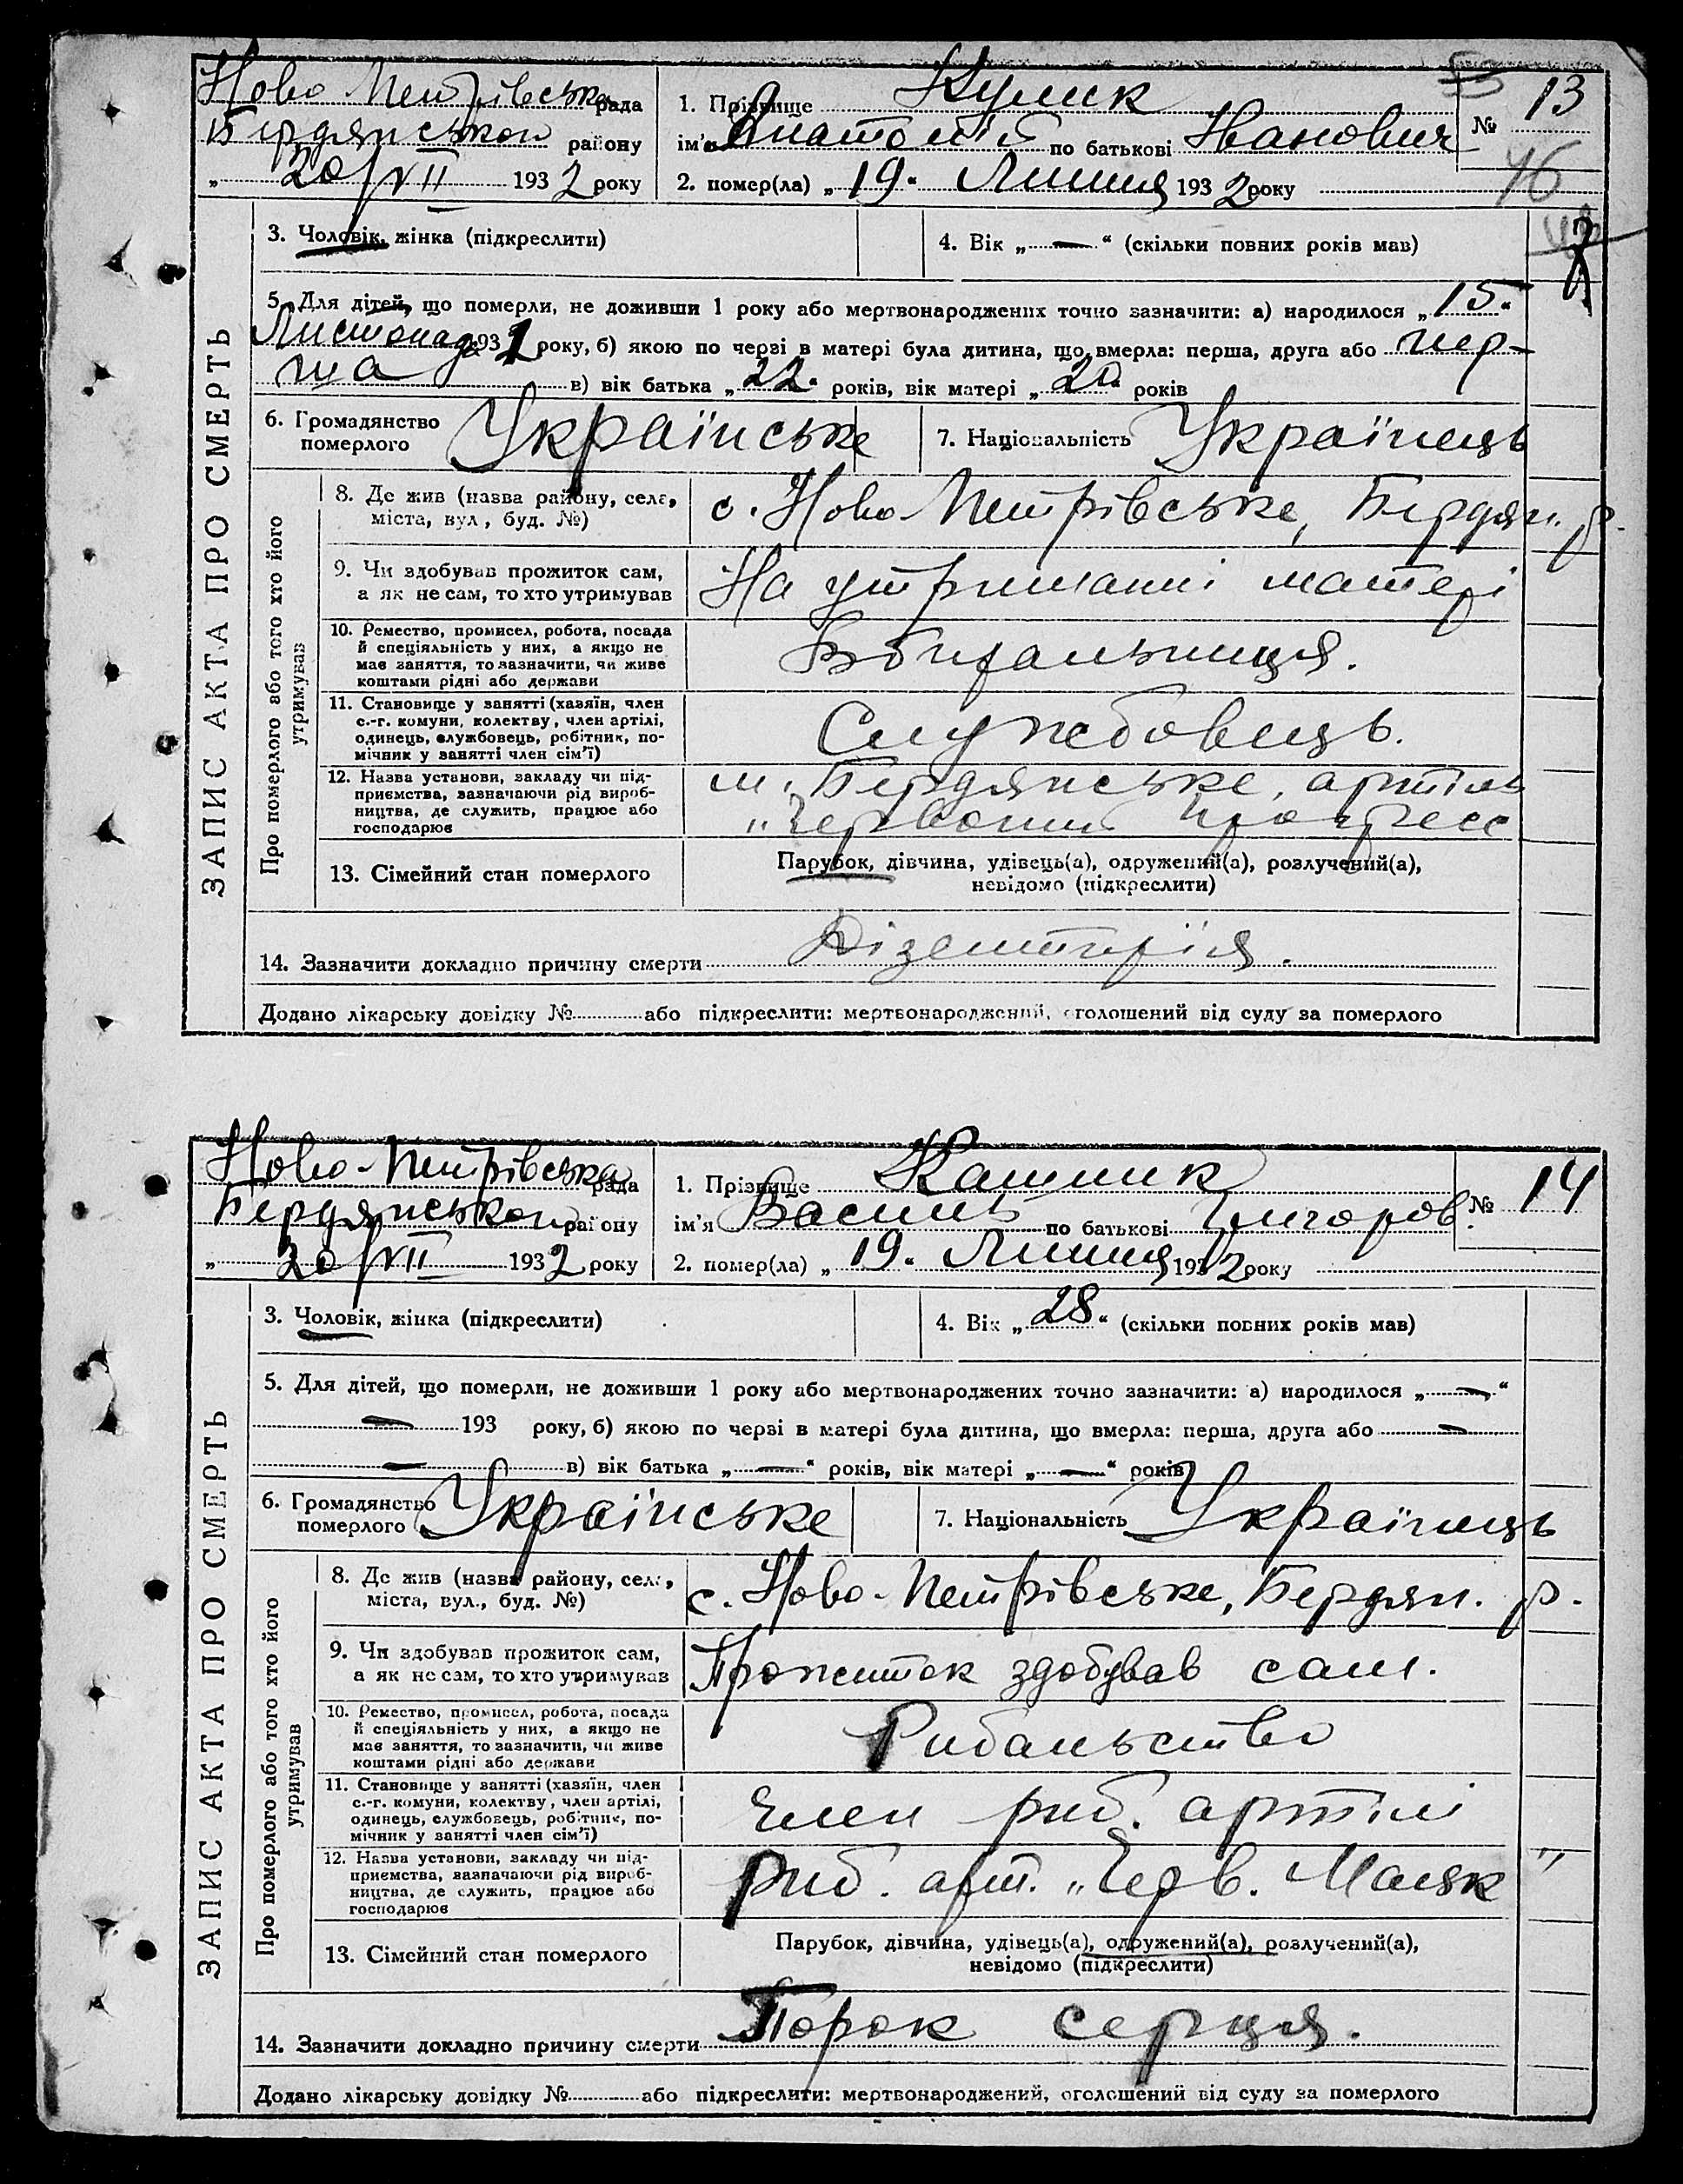 Ново Петрівська рада
Бердянського району
„ 20/VII 1932 року
1. Прізвище Кулик
ім'я Анатолій по батькові Іванович
2. помер(ла) „ 19. Липня 1932 року
№ 13
46
3. Чоловік, жінка (підкреслити)
4. Вік „ — “ (скільки повних років мав)
5. Для дітей, що померли, не доживши 1 року або мертвонароджених точно зазначити: а) народилося „ 15. “
Листопада 1931 року, б) якою по черзі в матері була дитина, що вмерла: перша, друга або пер-
ша в) вік батька „ 22. років, вік матері „ 20. років
6. Громадянство
померлого Українське
7. Національність Українець
ЗАПИС АКТА ПРО СМЕРТЬ
Про померлого або того хто його
утримував
8. Де жив (назва району, села,
міста, вул., буд. №)
с. Ново Петрівське, Бердян. р.
9. Чи здобував прожиток сам,
а як не сам, то хто утримував
На утриманні матері
10. Ремество, промисел, робота, посада
й спеціяльність у них, а якщо не
має заняття, то зазначити, чи живе
коштами рідні або держави
Вбиральниця.
11. Становище у занятті (хазяїн, член
с.-г. комуни, колектву, член артілі,
одинець, службовець, робітник, по-
мічник у занятті член сім'ї)
Службовець.
12. Назва установи, закладу чи під-
приємства, зазначаючи рід вироб-
ництва, де служить, працює або
господарює
м. Бердянське, артіль
„Червоний Прогресс
13. Сімейний стан померлого
Парубок, дівчина, удівець(а), одружений(а), розлучений(а),
невідомо (підкреслити)
14. Зазначити докладно причину смерти Дізентирія.
Додано лікарську довідку № або підкреслити: мертвонароджений, оголошений від суду за померлого
Ново-Петрівська рада
Бердянського району
„ 20/VII 1932 року
1. Прізвище
ім'я Василь по батькові Григоров.
2. помер(ла) „ 19. Липня 1932 року
№ 14
3. Чоловік, жінка (підкреслити)
4. Вік „ 28 “ (скільки повних років мав)
5. Для дітей, що померли, не доживши 1 року або мертвонароджених точно зазначити: а) народилося „ — “
— 193 року, б) якою по черзі в матері була дитина, що вмерла: перша, друга або —
— в) вік батька „ — “ років, вік матері „ — “ років
6. Громадянство
померлого Українське
7. Національність Українець
ЗАПИС АКТА ПРО СМЕРТЬ
Про померлого або того хто його
утримував
8. Де жив (назва району, села,
міста, вул., буд. №)
с. Ново-Петрівське, Бердян. р.
9. Чи здобував прожиток сам,
а як не сам, то хто утримував
Прожиток здобував сам.
10. Ремество, промисел, робота, посада
й спеціяльність у них, а якщо не
має заняття, то зазначити, чи живе
коштами рідні або держави
Рибальство
11. Становище у занятті (хазяїн, член
с.-г. комуни, колектву, член артілі,
одинець, службовець, робітник, по-
мічник у занятті член сім'ї)
Член риб. артілі
12. Назва установи, закладу чи під-
приємства, зазначаючи рід вироб-
ництва, де служить, працює або
господарює
Риб. арт. „Черв. Маяк“
13. Сімейний стан померлого
Парубок, дівчина, удівець(а), одружений(а), розлучений(а),
невідомо (підкреслити)
14. Зазначити докладно причину смерти Порок серця.
Додано лікарську довідку № або підкреслити: мертвонароджений, оголошений від суду за померлого